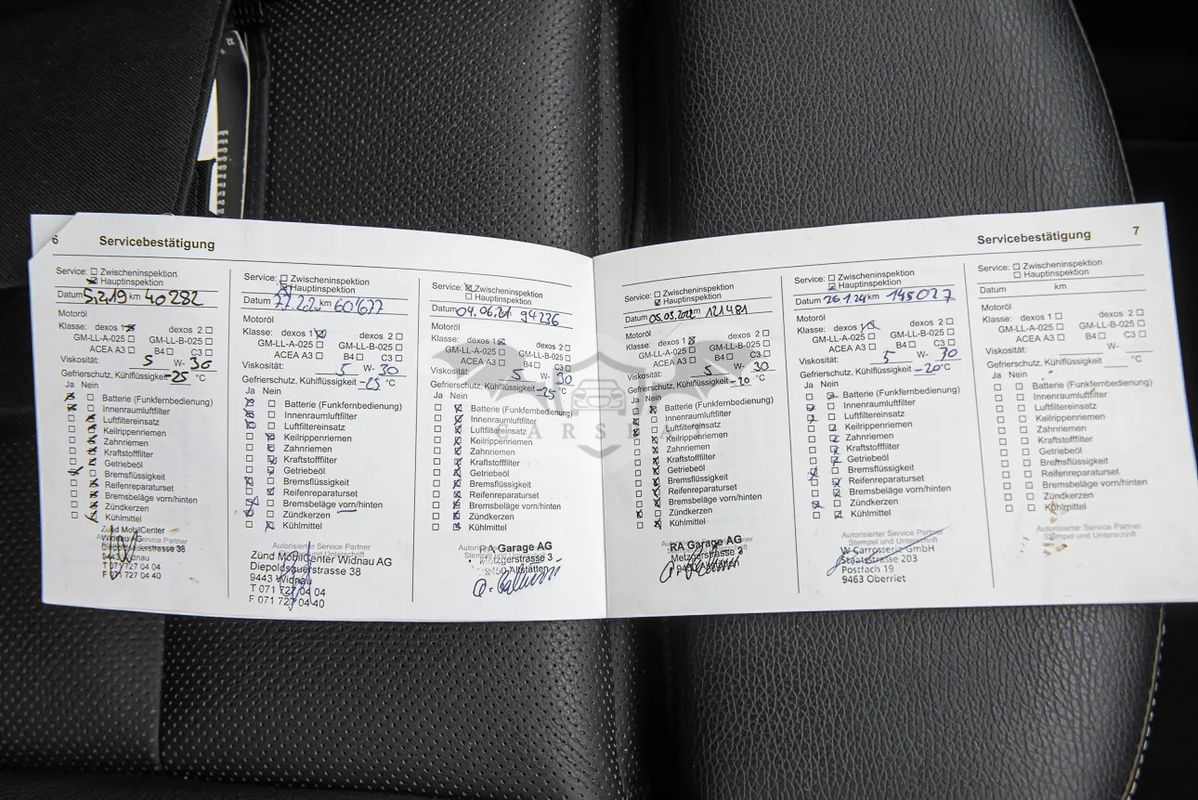 6 Servicebestätigung
Service: Zwischeninspektion
Hauptinspektion
Datum 5.2.19 km 40 282
Motoröl
Klasse: dexos 1 dexos 2
GM-LL-A-025 GM-LL-B-025
ACEA A3 B4 C3
Viskosität: 5 W- 30
Gefrierschutz, Kühlflüssigkeit -25 °C
Ja Nein
Batterie (Funkfernbedienung)
Innenraumluftfilter
Luftfiltereinsatz
Keilrippenriemen
Zahnriemen
Kraftstofffilter
Getriebeöl
Bremsflüssigkeit
Reifenreparaturset
Bremsbeläge vorn/hinten
Zündkerzen
Kühlmittel
Zünd MobilCenter
Widnau AG
Diepoldsauerstrasse 38
9443 Widnau
T 071 727 04 04
F 071 727 04 40
Service: Zwischeninspektion
Hauptinspektion
Datum km 60'677
Motoröl
Klasse: dexos 1 dexos 2
GM-LL-A-025 GM-LL-B-025
ACEA A3 B4 C3
Viskosität: 5 W- 30
Gefrierschutz, Kühlflüssigkeit -25 °C
Ja Nein
Batterie (Funkfernbedienung)
Innenraumluftfilter
Luftfiltereinsatz
Keilrippenriemen
Zahnriemen
Kraftstofffilter
Getriebeöl
Bremsflüssigkeit
Reifenreparaturset
Bremsbeläge vorn/hinten
Zündkerzen
Kühlmittel
Autorisierter Service Partner
Stempel und Unterschrift
Zünd MobilCenter Widnau AG
Diepoldsauerstrasse 38
9443 Widnau
T 071 727 04 04
F 071 727 04 40
Service: Zwischeninspektion
Hauptinspektion
Datum 04.06.21 94236
Motoröl
Klasse: dexos 1 dexos 2
GM-LL-A-025 GM-LL-B-025
ACEA A3 B4 C3
Viskosität: 5 W- 30
Gefrierschutz, Kühlflüssigkeit -25 °C
Ja Nein
Batterie (Funkfernbedienung)
Innenraumluftfilter
Luftfiltereinsatz
Keilrippenriemen
Zahnriemen
Kraftstofffilter
Getriebeöl
Bremsflüssigkeit
Reifenreparaturset
Bremsbeläge vorn/hinten
Zündkerzen
Kühlmittel
RA Garage AG
Metzgerstrasse 3
9450 Altstätten
Servicebestätigung 7
Service: Zwischeninspektion
Hauptinspektion
Datum 05.05.2022 km 121 481
Motoröl
Klasse: dexos 1 dexos 2
GM-LL-A-025 GM-LL-B-025
ACEA A3 B4 C3
Viskosität: 5 W- 30
Gefrierschutz, Kühlflüssigkeit -20 °C
Ja Nein
Batterie (Funkfernbedienung)
Innenraumluftfilter
Luftfiltereinsatz
Keilrippenriemen
Zahnriemen
Kraftstofffilter
Getriebeöl
Bremsflüssigkeit
Reifenreparaturset
Bremsbeläge vorn/hinten
Zündkerzen
Kühlmittel
RA Garage AG
Metzgerstrasse 3
9450 Altstätten
Service: Zwischeninspektion
Hauptinspektion
Datum 26.1.24 km 145 027
Motoröl
Klasse: dexos 1 dexos 2
GM-LL-A-025 GM-LL-B-025
ACEA A3 B4 C3
Viskosität: 5 W- 30
Gefrierschutz, Kühlflüssigkeit -20 °C
Ja Nein
Batterie (Funkfernbedienung)
Innenraumluftfilter
Luftfiltereinsatz
Keilrippenriemen
Zahnriemen
Kraftstofffilter
Getriebeöl
Bremsflüssigkeit
Reifenreparaturset
Bremsbeläge vorn/hinten
Zündkerzen
Kühlmittel
Autorisierter Service Partner
Stempel und Unterschrift
W Carrosserie GmbH
Staatsstrasse 203
Postfach 19
9463 Oberriet
Service: Zwischeninspektion
Hauptinspektion
Datum km
Motoröl
Klasse: dexos 1 dexos 2
GM-LL-A-025 GM-LL-B-025
ACEA A3 B4 C3
Viskosität: W-
Gefrierschutz, Kühlflüssigkeit °C
Ja Nein
Batterie (Funkfernbedienung)
Innenraumluftfilter
Luftfiltereinsatz
Keilrippenriemen
Zahnriemen
Kraftstofffilter
Getriebeöl
Bremsflüssigkeit
Reifenreparaturset
Bremsbeläge vorn/hinten
Zündkerzen
Kühlmittel
Autorisierter Service Partner
Stempel und Unterschrift